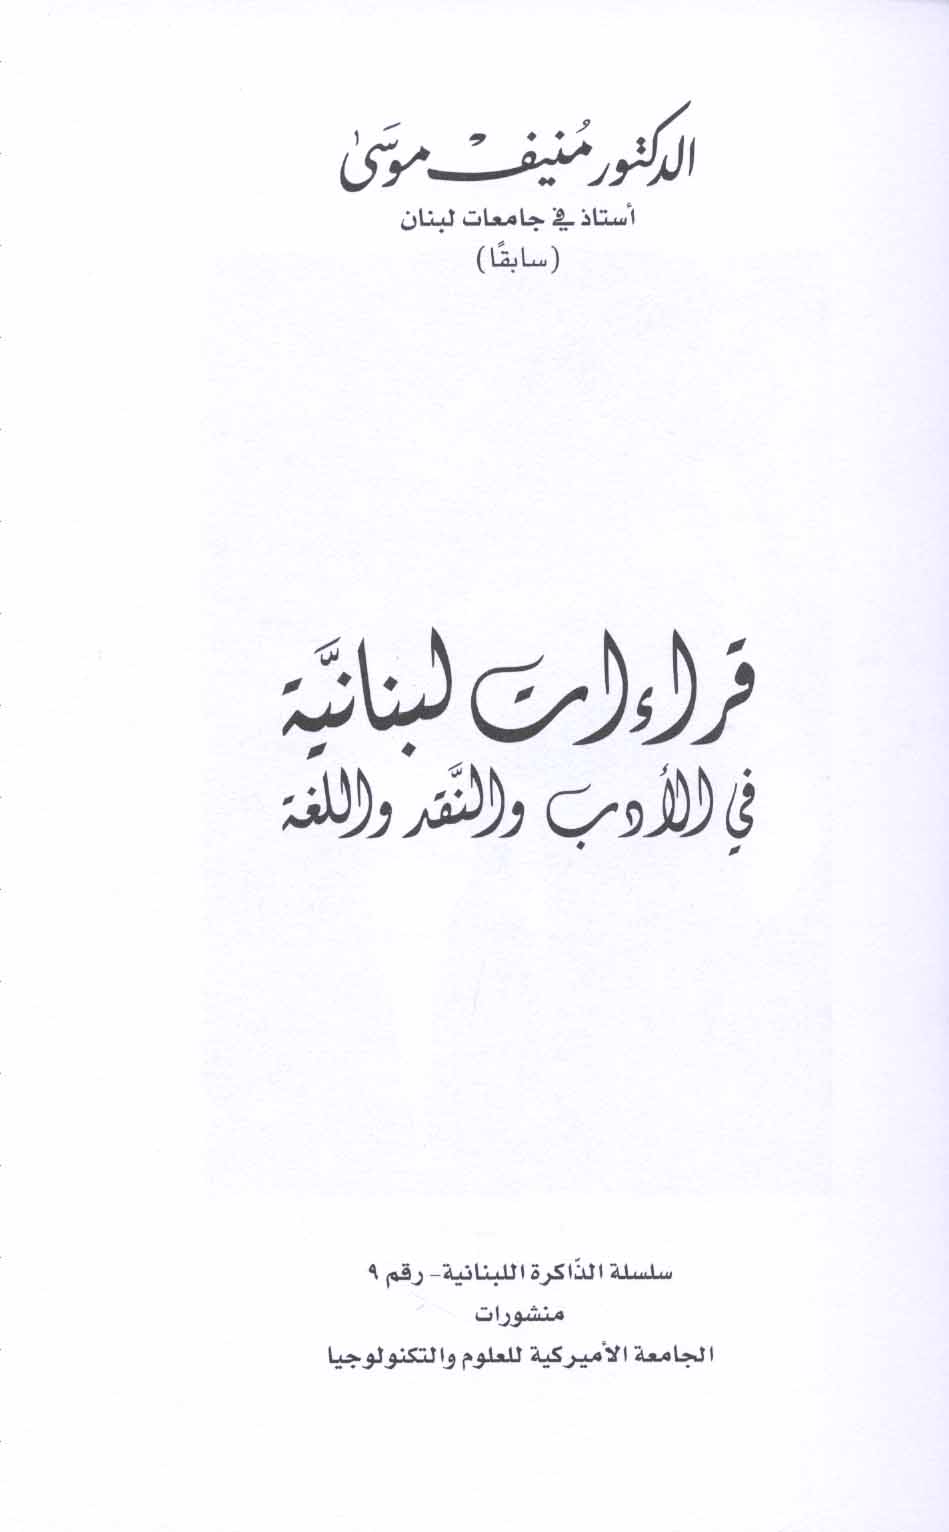 الدكتور مُنيف موسَىٰ
أستاذ في جامعات لبنان
(سابقًا)
قراءات لبنانيَّة
في الأدب والنَّقد واللغة
سلسلة الذّاكرة اللبنانية - رقم ٩
منشورات
الجامعة الأميركية للعلوم والتكنولوجيا